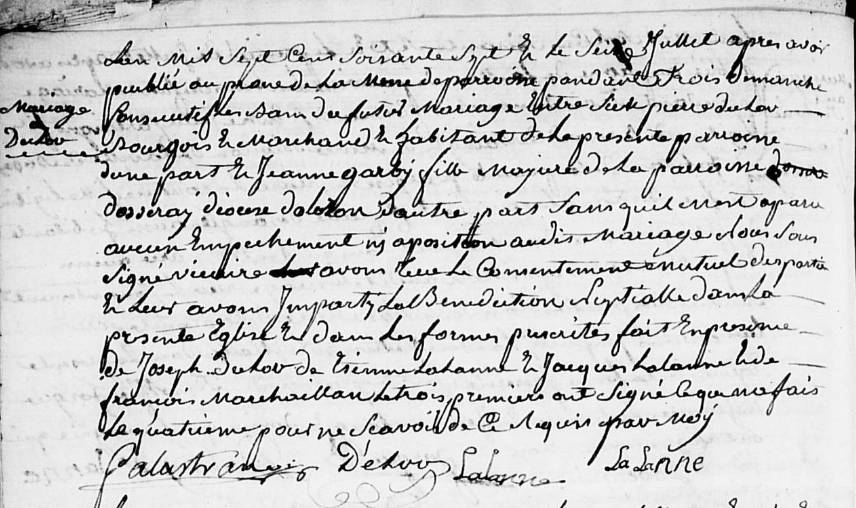 Lan Mil Sept Cens Soisante Sept Et Le Seize Jullet apres avoir
publiée au prone de La Messe deparroisse pandant trois dimanche
Consecutif les bans du futur Mariage Entre Sieur pierre duLou
Mariage
DuLou
Bourgois Et Marchand Et habitant de La presente parroisse
dune part Et Jeanne garby fille Majure de La parroisse
dosseray diocese doloron dautre part Sans quil nest aparu
aucun Empechement ny aposition audit Mariage Nous Sous
Signé vicaire avons Reçue Le Consentement mutuel des partie
Et Leur avons Imparty La Benediction Nuptialle dans La
presente Eglise Et dans Les formes prescrites fait En presence
de Joseph duLou de Etienne Lalanne Et Jacques Lalanne Et de
francois Marchaillan Le trois premiers ont Signé Ce que na fais
Le quatrieme pour ne Scavoir de Ce Requis par Moy
Dulou Lalanne LaLanne